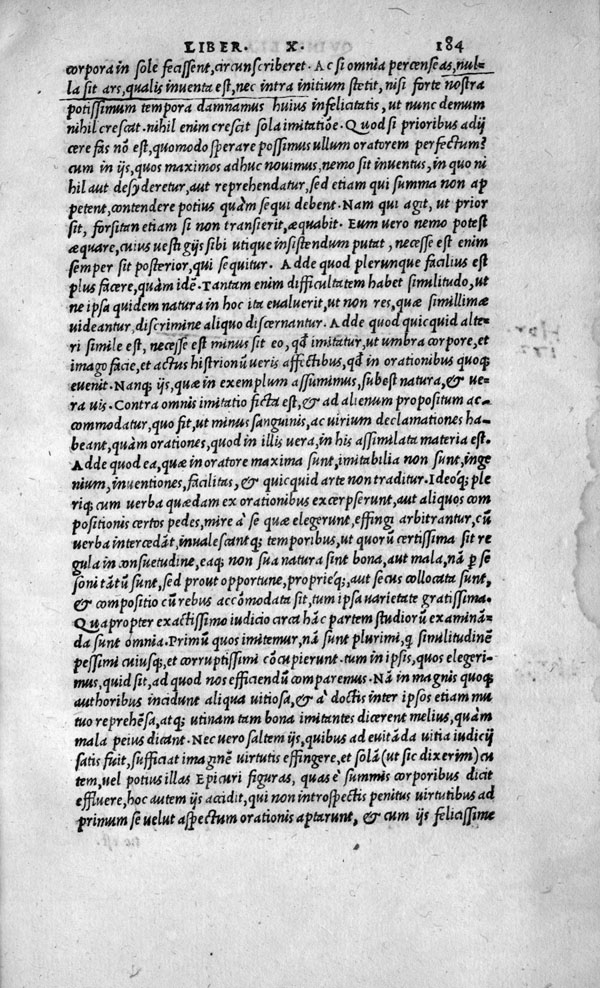 LIBER. X. 184
corpora in sole fecissent, circunscriberet. Ac si omnia percenseas, nul-
la sit ars, qualis inventa est, nec intra initium stetit, nisi forte nostra
potissimum tempora damnamus huius infelicitatis, ut nunc demum
nihil crescat. nihil enim crescit sola imitatiõe. Quod si prioribus adij
cere fas nõ est, quomodo sperare possimus ullum oratorem perfectum?
cum in ijs, quos maximos adhuc novimus, nemo sit inventus, in quo ni
hil aut desyderetur, aut reprehendatur, sed etiam qui summa non ap
petent, contendere potius quàm sequi debent. Nam qui agit, ut prior
sit, forsitan etiam si non transierit, æquabit. Eum vero nemo potest
æquare, cuius uestigijs sibi utique insistendum putat, necesse est enim
semper sit posterior, qui sequitur. Adde quod plerunque facilius est
plus facere, quàm idẽ. Tantam enim difficultatem habet similitudo, ut
ne ipsa quidem natura in hoc ita evaluerit, ut non res, quæ simillimæ
videantur, discrimine aliquo discernantur. Adde quod quicquid alte-
ri simile est, necesse est minus sit eo, qđ imitatur, ut umbra corpore, et
imago facie, et actus histrionũ veris affectibus, qđ in orationibus quoq;
evenit. Nanq; ijs, quæ in exemplum assumimus, subest natura, & ve-
ra vis. Contra omnis imitatio ficta est, & ad alienum propositum ac-
commodatur, quo fit, ut minus sanguinis, ac virium declamationes ha-
beant, quàm orationes, quod in illis vera, in his assimilata materia est.
Adde quod ea, quæ in oratore maxima sunt, imitabilia non sunt, inge
nium, inventiones, facilitas, & quicquid arte non traditur. Ideoq; ple
riq; cum verba quædam ex orationibus excerpserunt, aut aliquos com
positionis certos pedes, mire à se quæ elegerunt, effingi arbitrantur, cũ
verba intercedãt, invalescantq; temporibus, ut quorũ certissima sit re
gula in consuetudine, eaq; non sua natura sint bona, aut mala, nã per se
soni tãtũ sunt, sed prout opportune, proprieq;, aut secus collocata sunt,
& compositio cũ rebus accõmodata sit, tum ipsa varietate gratissima.
Quapropter exactissimo iudicio circa hãc partem studiorũ examinã-
da sunt omnia. Primũ quos imitemur, nã sunt plurimi, q similitudinẽ
pessimi cuiusq;, et corruptissimi cõcupierunt. tum in ipsis, quos elegeri-
mus, quid sit, ad quod nos efficiendũ comparemus. Nã in magnis quoq;
authoribus incidunt aliqua vitiosa, & à doctis inter ipsos etiam mu
tuo reprehẽsa, atq; utinam tam bona imitantes dicerent melius, quàm
mala peius dicunt. Nec vero saltem ijs, quibus ad evitãda vitia iudicij
satis fuit, sufficiat imaginẽ virtutis effingere, et solã (ut sic dixerim) cu
tem, vel potius illas Epicuri figuras, quas è summis corporibus dicit
effluere, hoc autem ijs accidit, qui non introspectis penitus virtutibus ad
primum se velut aspectum orationis aptarunt, & cum ijs felicissime